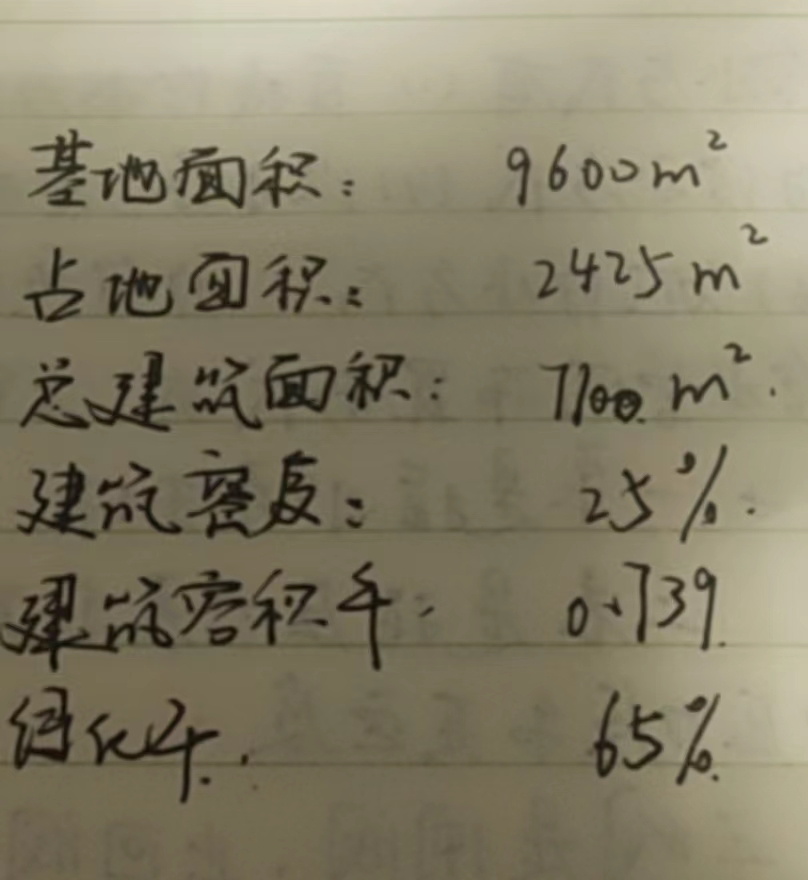 基地面积: 9600m²
占地面积: 2425m²
总建筑面积: 7100m².
建筑密度: 25%.
建筑容积率. 0.739
绿化率. 65%